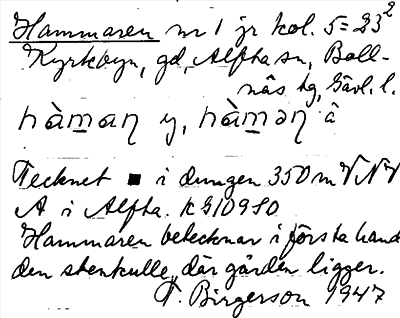 Hammaren nr 1 jr kol. 5=23²
Kyrkbyn, gd, Alfta sn, Boll-
näs tg, Gävl. l.
hàmaɳ y, hàməɳ â
Tecknet ■ i dungen 350 m VNV
A i Alfta. K G10950
Hammaren betecknar i första hand
den stenkulle, där gården ligger.
T. Birgerson 1947